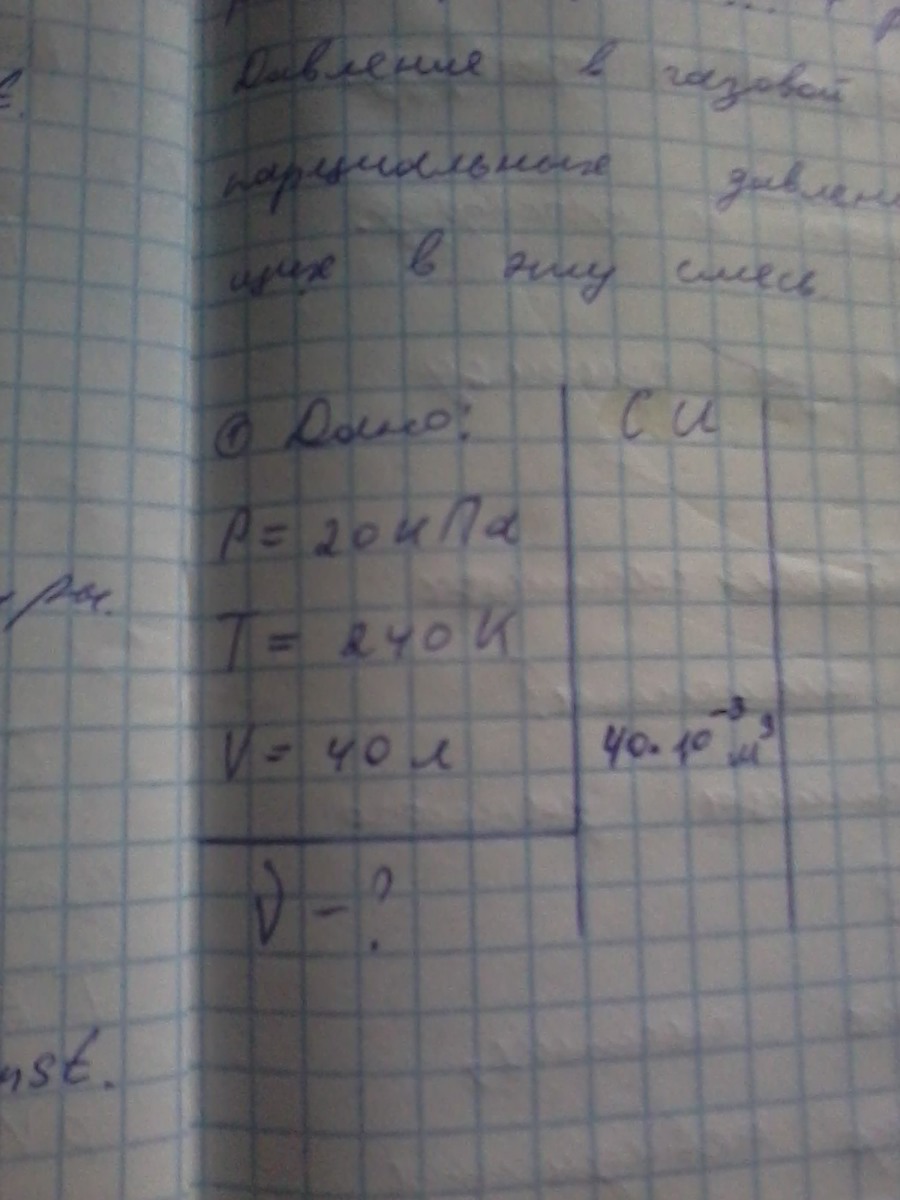 Давление в газовой
парциальных давлен
щих в эту смесь
① Дано:
СИ
P = 20 кПа
T = 240 К
V = 40 л
40·10⁻³ м³
ν - ?
nst.